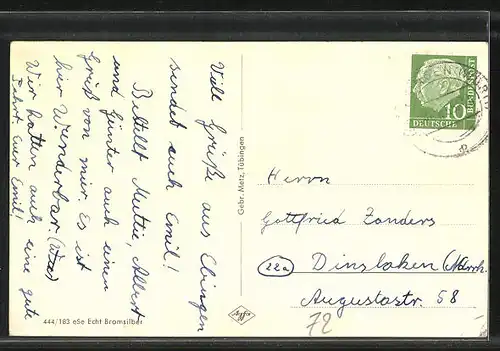 Viele Grüße aus Ebingen
sendet euch Emil!
Bestellt Mutti, Albert
und Günter auch einen
Gruß von mir. Es ist
hier Wunderbar.
Wir hatten auch eine gute
Fahrt. Euer Emil!
444/183 eSe Echt Bromsilber
Gebr. Metz, Tübingen
Agfa
10
DEUTSCHE
BUNDESPOST
Herrn
Gottfried Zanders
22a Dinslaken
Augustastr. 58
72